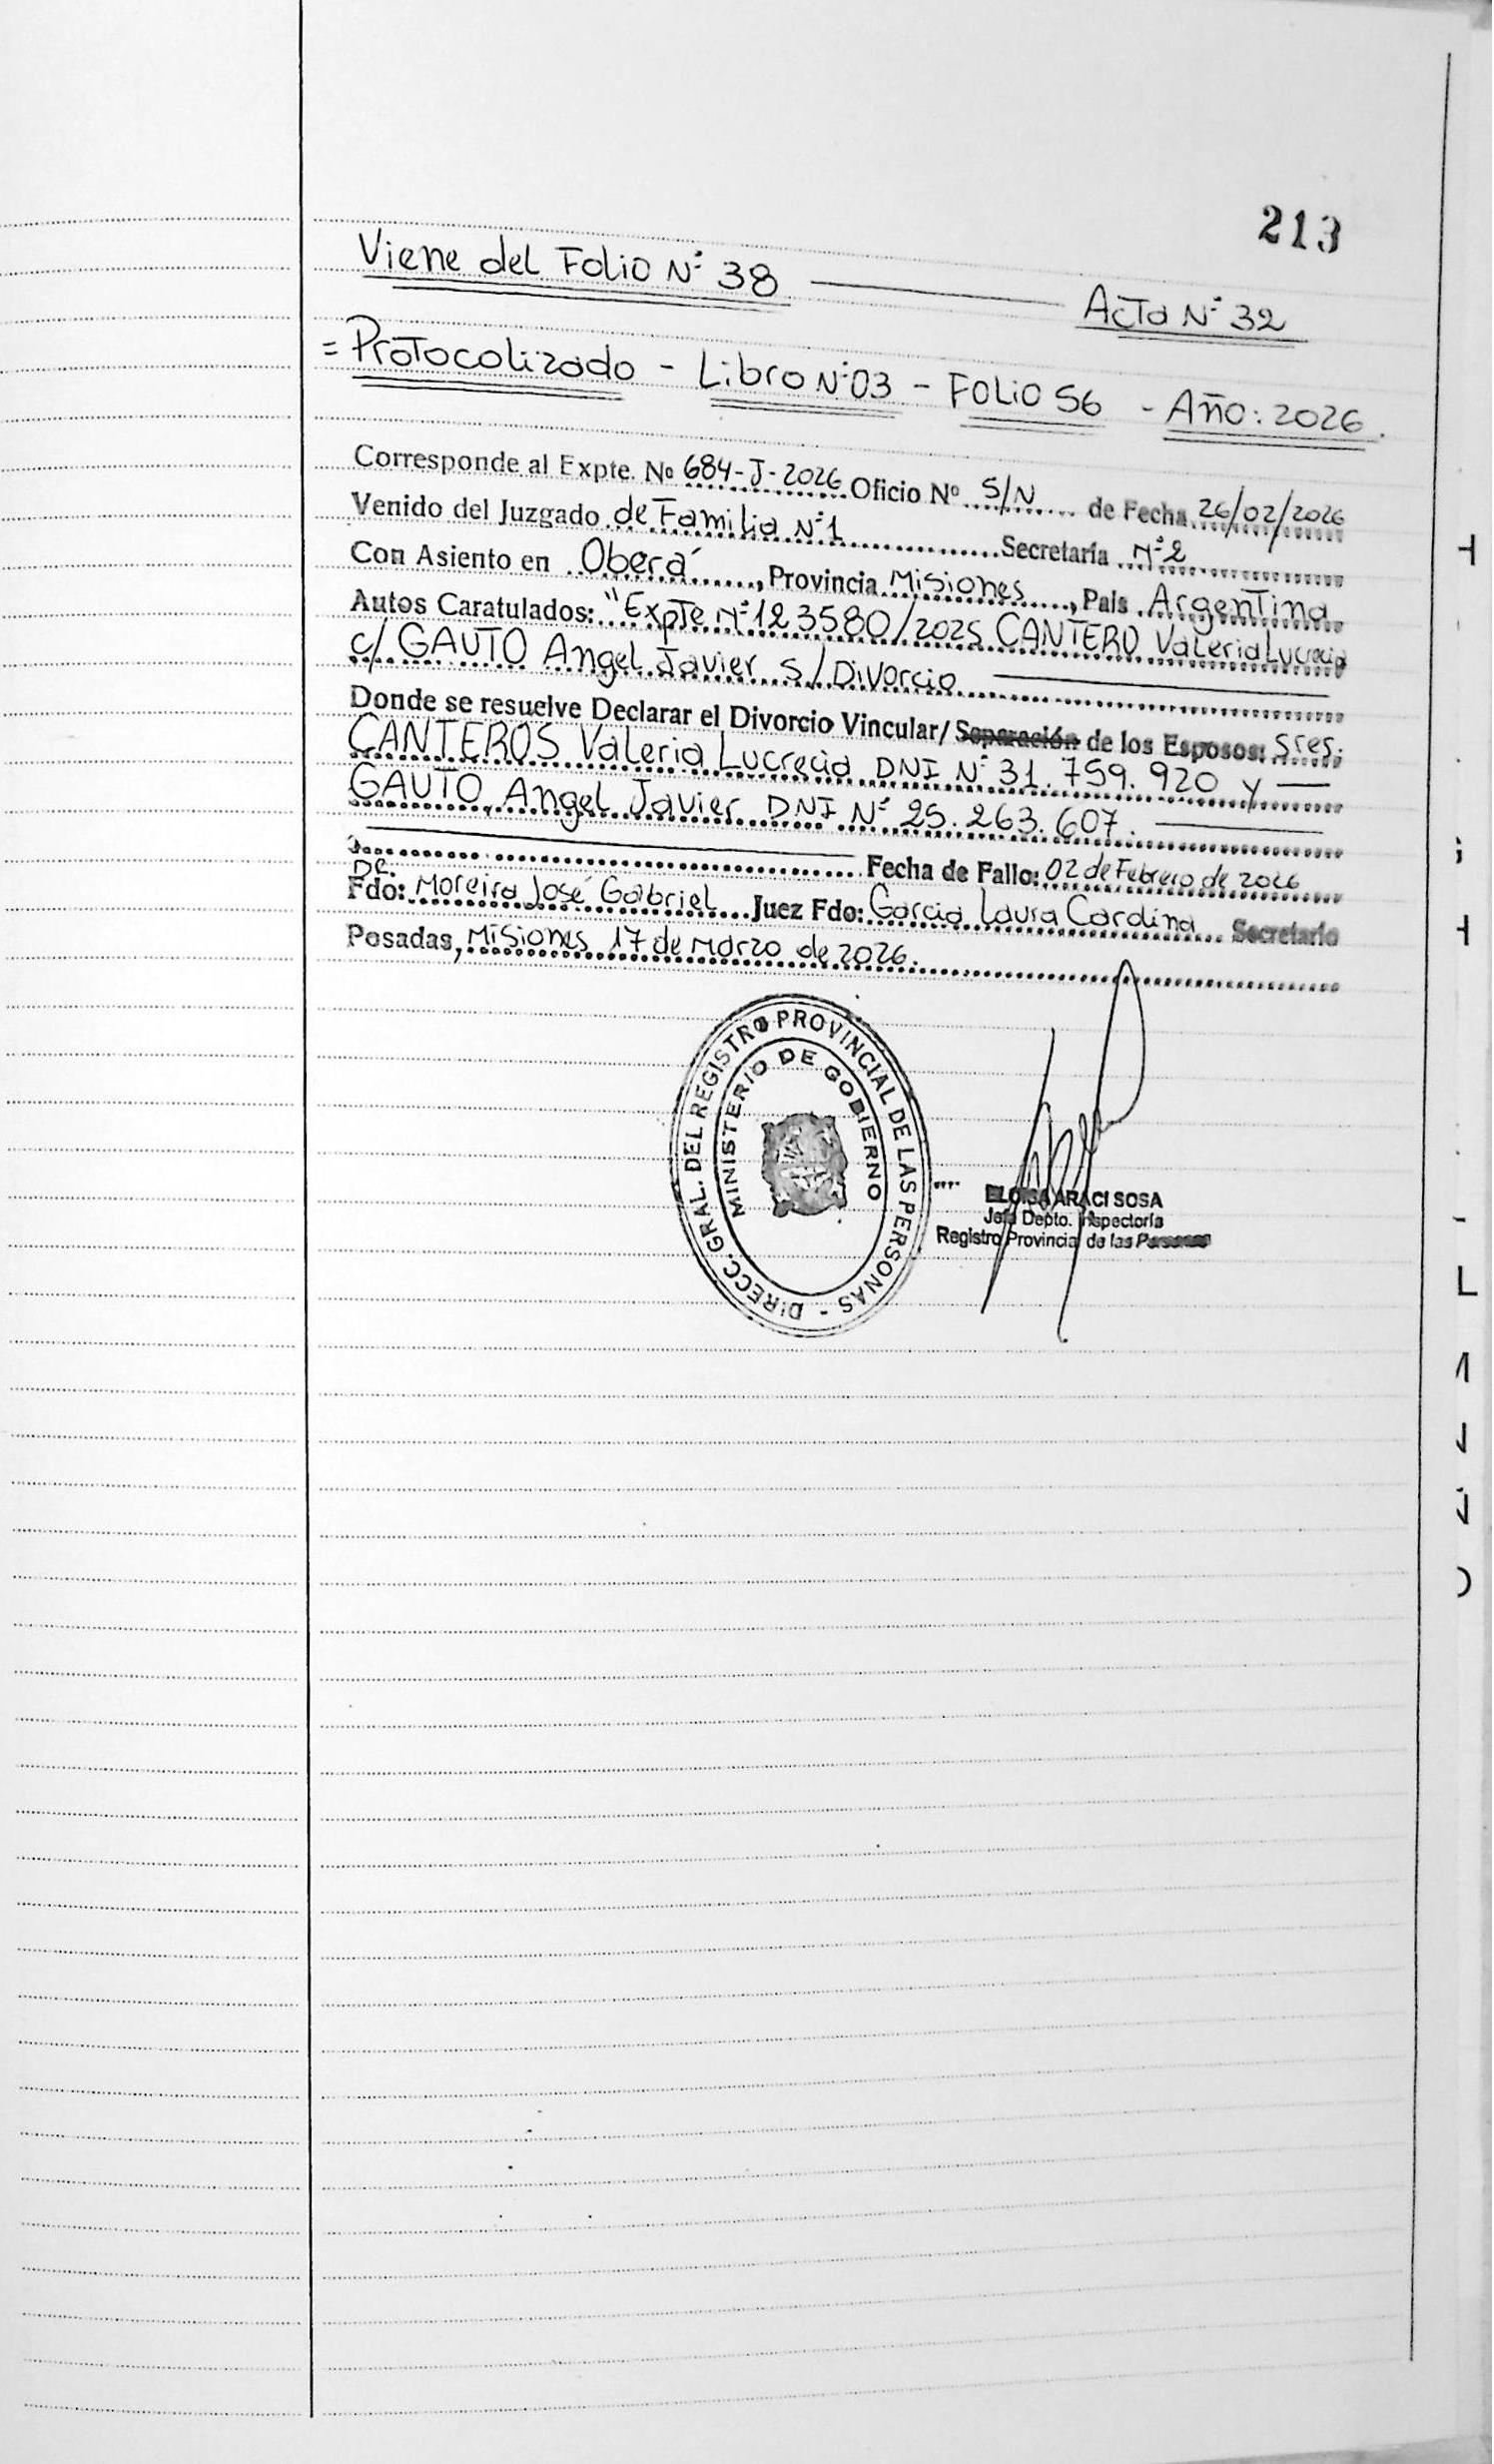 213
Viene del Folio Nº 38 ——— Acta Nº 32
= Protocolizado - Libro Nº 03 - Folio 56 - Año: 2026.
Corresponde al Expte. Nº 684-J-2026 Oficio Nº S/N de Fecha 26/02/2026
Venido del Juzgado de Familia Nº 1 Secretaría Nº 2
Con Asiento en Oberá, Provincia Misiones, País Argentina
Autos Caratulados: "Expte Nº 123580/2025 CANTERO Valeria Lucrecia
c/ GAUTO Angel Javier s/ Divorcio ———
Donde se resuelve Declarar el Divorcio Vincular/ Separación de los Esposos: Sres.
CANTEROS Valeria Lucrecia DNI Nº 31.759.920 y —
GAUTO Angel Javier DNI Nº 25.263.607. ———
Fecha de Fallo: 02 de Febrero de 2026
Dr.
Fdo: Moreira José Gabriel Juez Fdo: Garcia Laura Cardina Secretario
Posadas, Misiones 17 de Marzo de 2026.
DIRECC. GRAL. DEL REGISTRO PROVINCIAL DE LAS PERSONAS -
MINISTERIO DE GOBIERNO
ELOISA ARACI SOSA
Jefa Depto. Inspectoría
Registro Provincial de las Personas